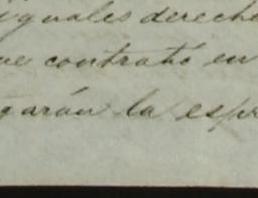 iguales derecho
ue contrató en
garán la espr